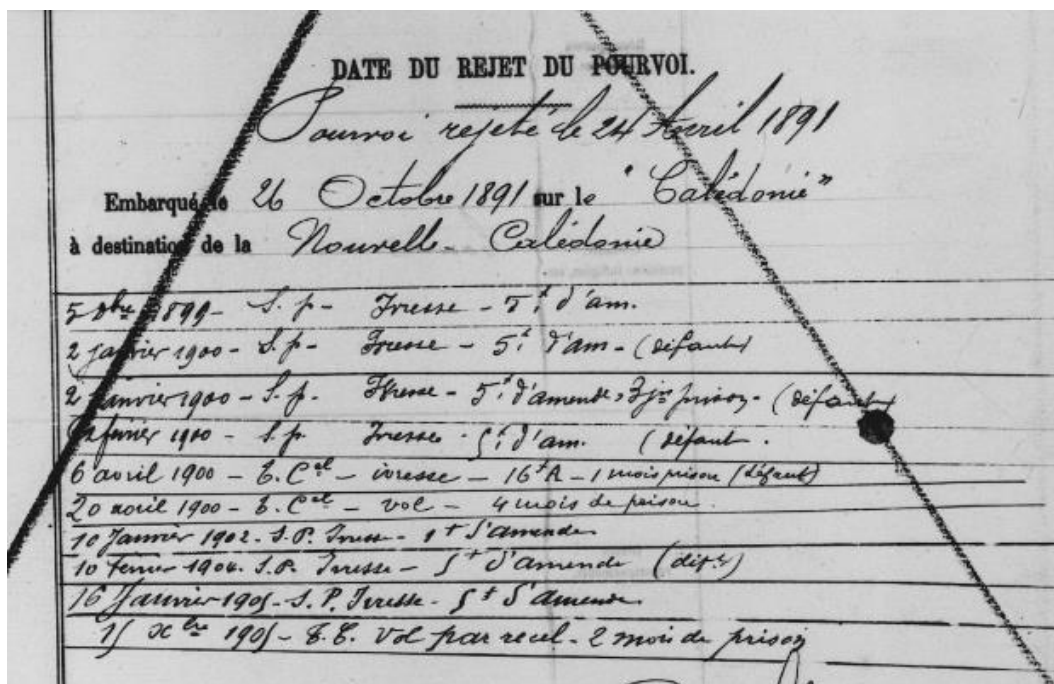 DATE DU REJET DU POURVOI.
Pourvoi rejeté le 24 Avril 1891
Embarqué le 26 Octobre 1891 sur le "Calédonie"
à destination de la Nouvelle-Calédonie
5 1899 - S. p. - Ivresse - 5f d'am.
2 Janvier 1900 - S. p. - Ivresse - 5f d'am - (défaut)
2 Janvier 1900 - S. p. Ivresse - 5f d'amende, 3 jrs prison - (défaut)
février 1900 - S. p. Ivresse - 5f d'am. (défaut.
6 avril 1900 - T. Cel - ivresse - 16f A - 1 mois prison (défaut)
20 avril 1900 - T. Cel - vol - 4 mois de prison.
10 Janvier 1902 - S. P. Ivresse - 1f d'amende
10 février 1904. S. P. Ivresse - 5f d'amende
16 Janvier 1905 - S. P. Ivresse - 5f d'amende
15 Xbre 1905 - T. C. Vol par recel - 2 mois de prison